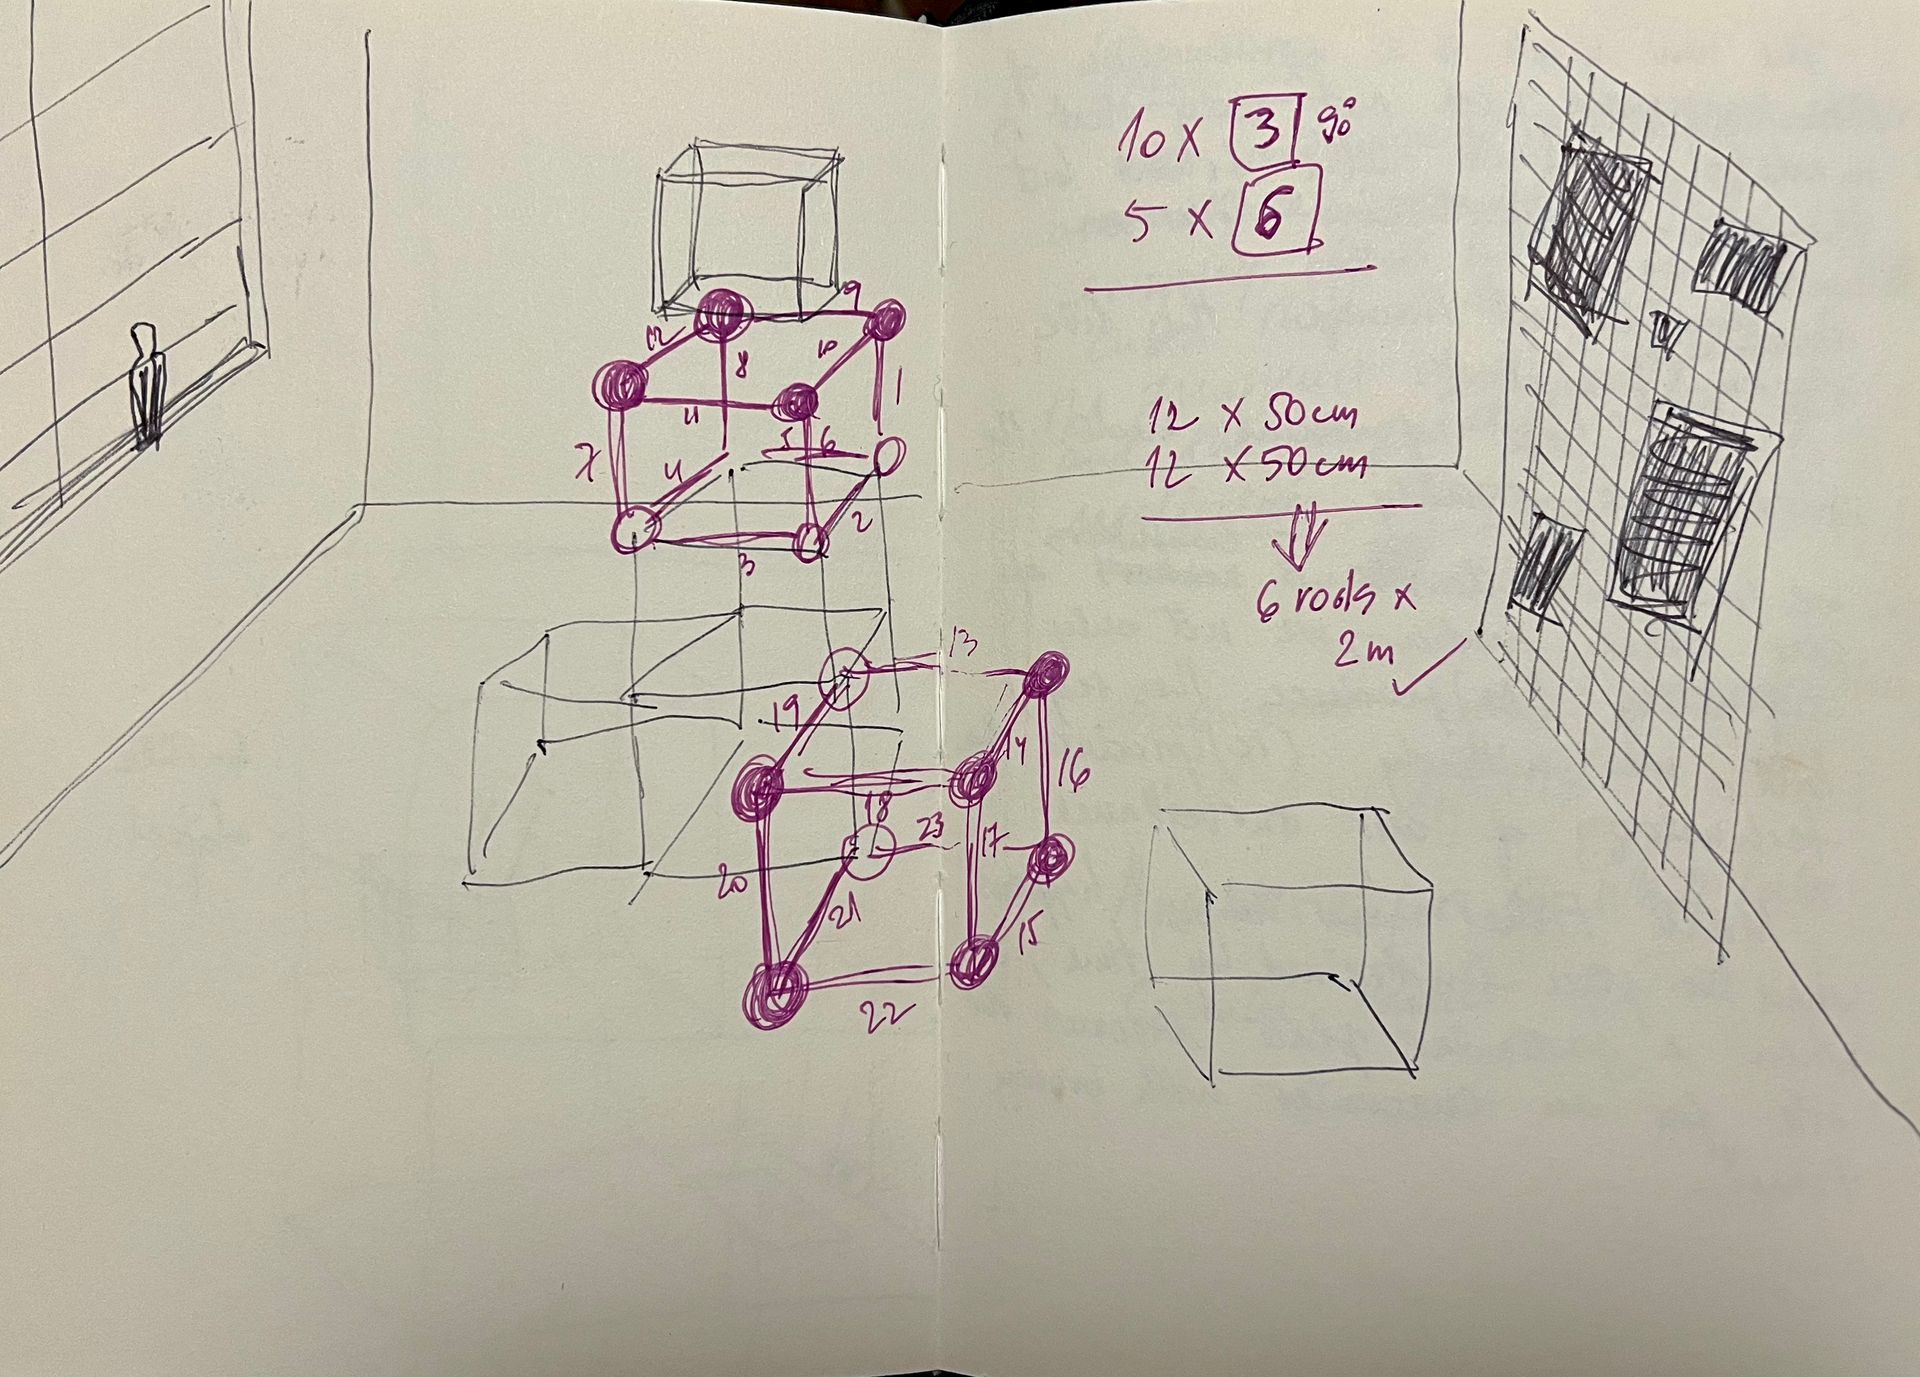 10 x 3 90°
5 x 6
12 x 50cm
12 x 50cm
6 rods x
2m
9
12
10
8
1
11
7
4
5
6
2
3
13
19
14
16
18
23
17
20
21
15
22